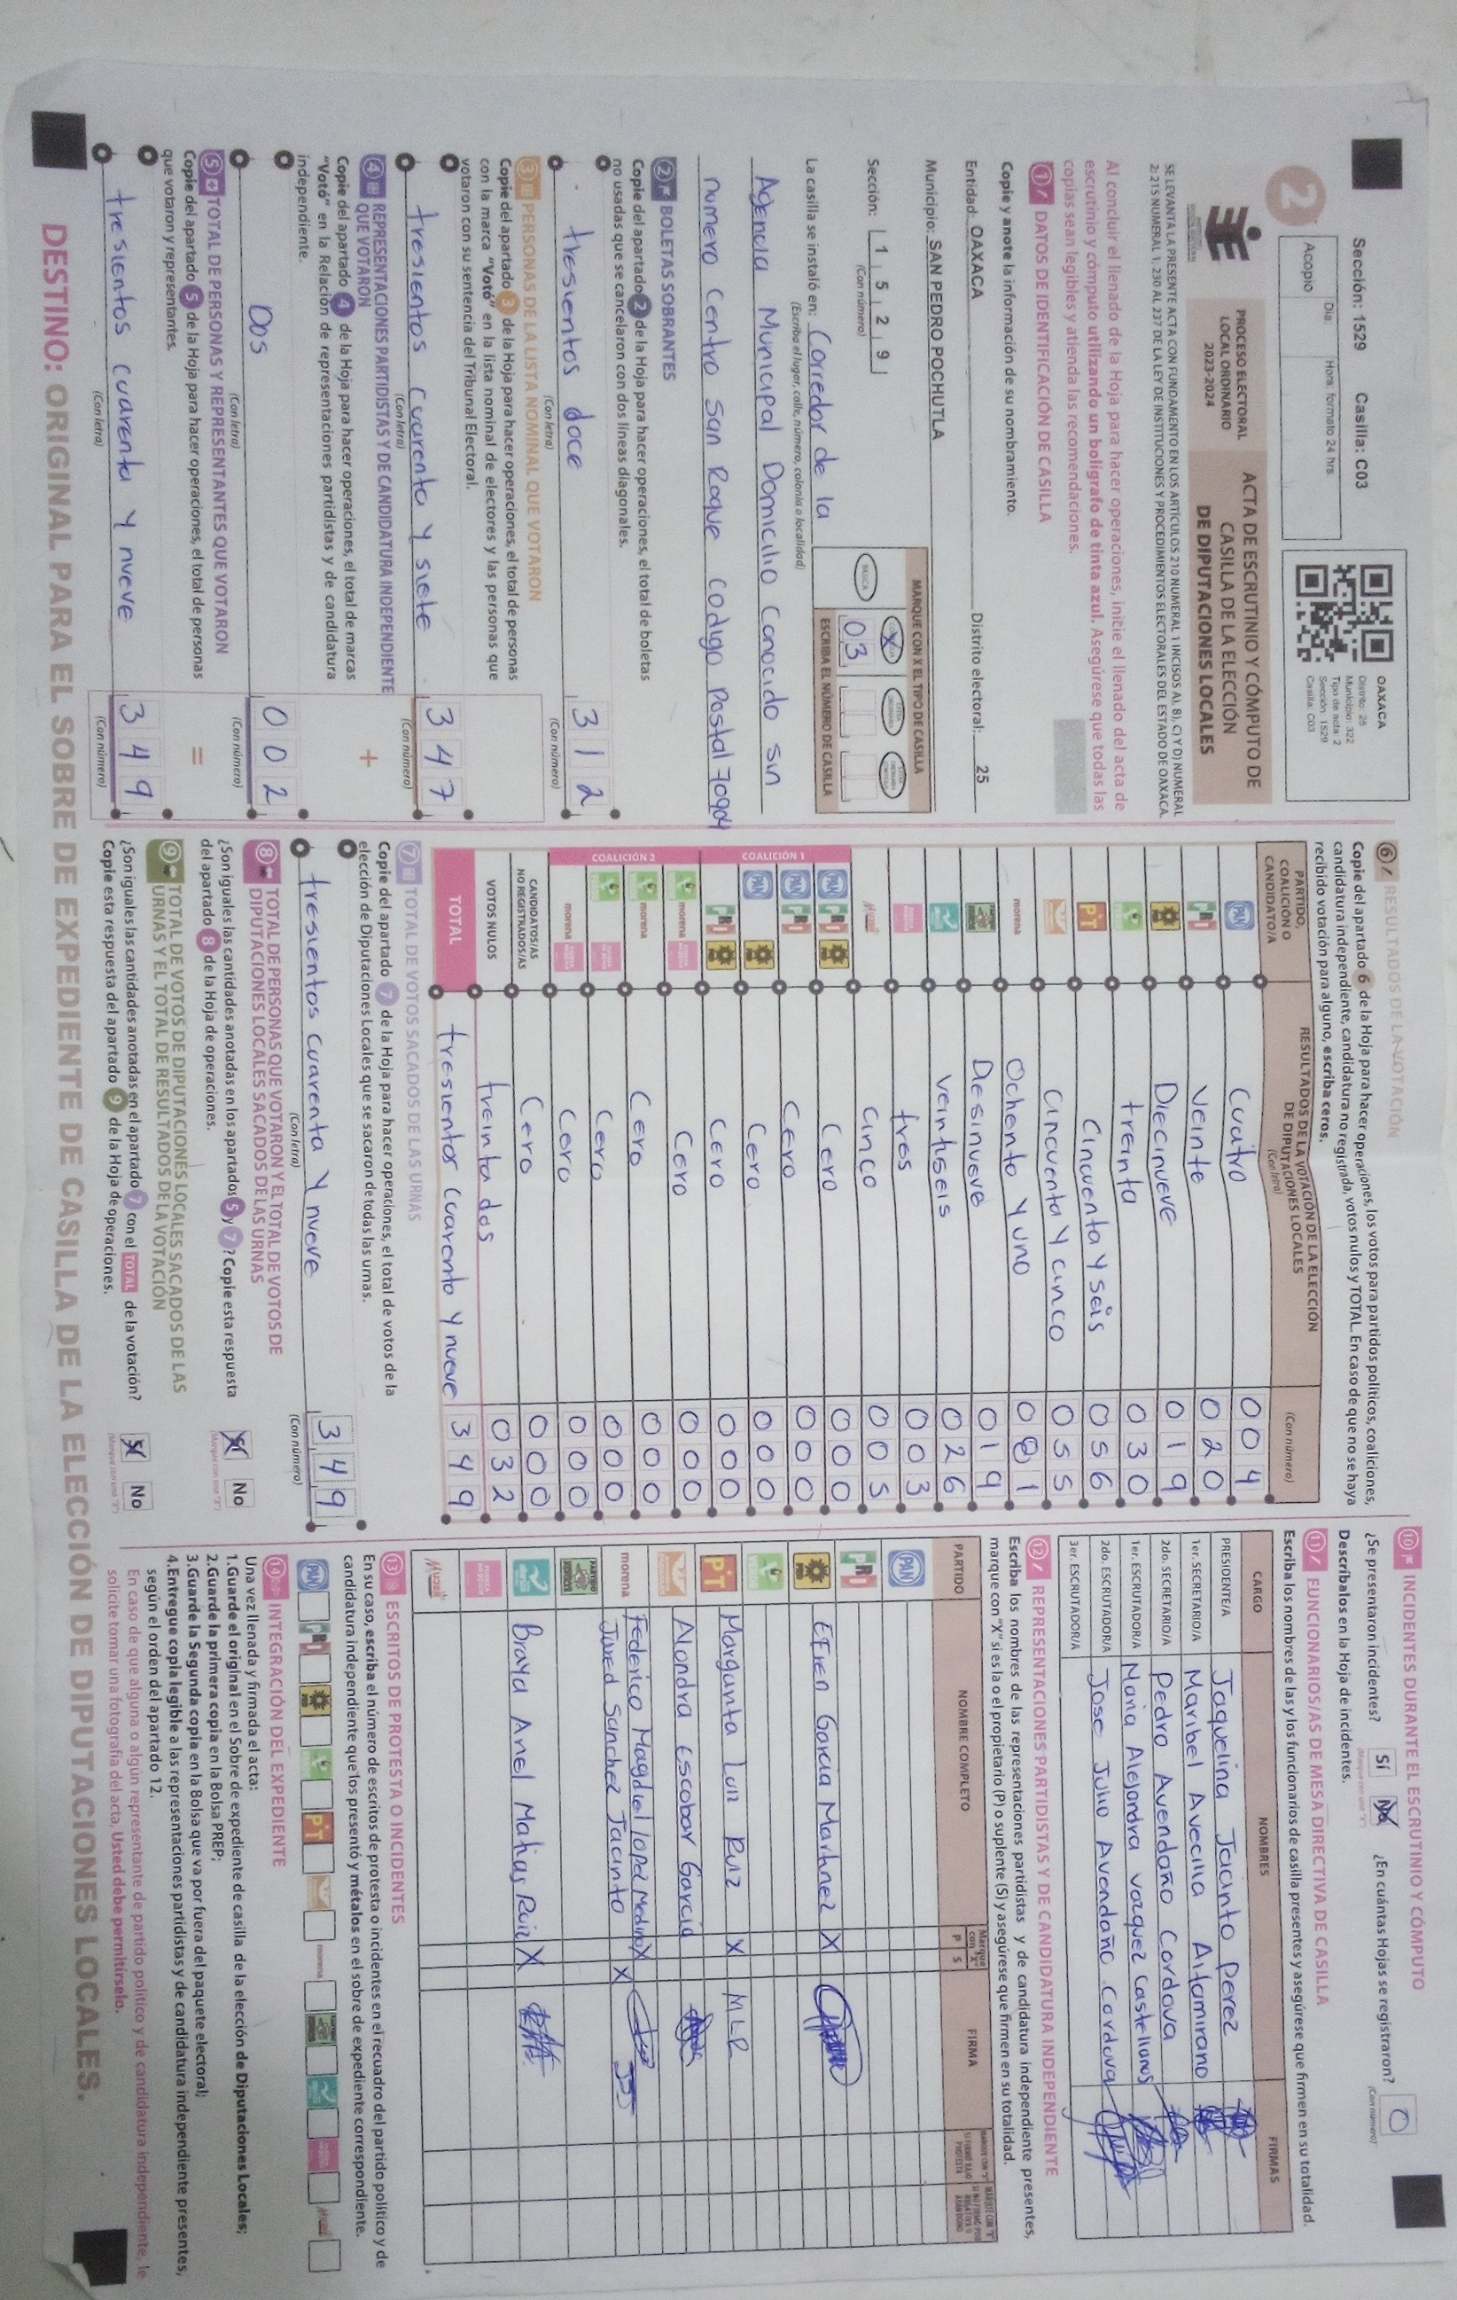 Sección: 1529 Casilla: C03
2
Día Hora: formato 24 hrs
Acopio
OAXACA
Distrito: 25
Municipio: 322
Tipo de acta: 2
Sección: 1529
Casilla: C03
PROCESO ELECTORAL
LOCAL ORDINARIO
2023-2024
ACTA DE ESCRUTINIO Y CÓMPUTO DE
CASILLA DE LA ELECCIÓN
DE DIPUTACIONES LOCALES
SE LEVANTA LA PRESENTE ACTA CON FUNDAMENTO EN LOS ARTÍCULOS 210 NUMERAL 1 INCISOS A), B), C) Y D) NUMERAL
2; 215 NUMERAL 1, 230 AL 237 DE LA LEY DE INSTITUCIONES Y PROCEDIMIENTOS ELECTORALES DEL ESTADO DE OAXACA.
Al concluir el llenado de la Hoja para hacer operaciones, inicie el llenado del acta de
escrutinio y cómputo utilizando un bolígrafo de tinta azul. Asegúrese que todas las
copias sean legibles y atienda las recomendaciones.
1 DATOS DE IDENTIFICACIÓN DE CASILLA
Copie y anote la información de su nombramiento.
Entidad: OAXACA Distrito electoral: 25
Municipio: SAN PEDRO POCHUTLA
Sección: 1 5 2 9
(Con número)
MARQUE CON X EL TIPO DE CASILLA
BÁSICA X
ESCRIBA EL NÚMERO DE CASILLA
03
La casilla se instaló en: Corredor de la
(Escriba el lugar, calle, número, colonia o localidad)
Agencia Municipal Domicilio Conocido sin
numero Centro San Roque Codigo Postal 70904
2 BOLETAS SOBRANTES
Copie del apartado 2 de la Hoja para hacer operaciones, el total de boletas
no usadas que se cancelaron con dos líneas diagonales.
tresientos doce 312
(Con letra) (Con número)
3 PERSONAS DE LA LISTA NOMINAL QUE VOTARON
Copie del apartado 3 de la Hoja para hacer operaciones, el total de personas
con la marca "Votó" en la lista nominal de electores y las personas que
votaron con su sentencia del Tribunal Electoral.
tresientos cuarenta y siete 347
(Con letra) (Con número)
4 REPRESENTACIONES PARTIDISTAS Y DE CANDIDATURA INDEPENDIENTE
QUE VOTARON
Copie del apartado 4 de la Hoja para hacer operaciones, el total de marcas
"Votó" en la Relación de representaciones partidistas y de candidatura
independiente.
+
Dos 002
(Con letra) (Con número)
5 TOTAL DE PERSONAS Y REPRESENTANTES QUE VOTARON
Copie del apartado 5 de la Hoja para hacer operaciones, el total de personas
que votaron y representantes.
=
tresientos cuarenta y nueve 349
(Con letra) (Con número)
6 RESULTADOS DE LA VOTACIÓN
Copie del apartado 6 de la Hoja para hacer operaciones, los votos para partidos políticos, coaliciones,
candidatura independiente, candidatura no registrada, votos nulos y TOTAL. En caso de que no se haya
recibido votación para alguno, escriba ceros.
PARTIDO, COALICIÓN O CANDIDATO/A
RESULTADOS DE LA VOTACIÓN DE LA ELECCIÓN DE DIPUTACIONES LOCALES
(Con letra) (Con número)
PAN Cuatro 004
PRI Veinte 020
PRD Diecinueve 019
treinta 030
PT Cincuenta y seis 056
Cincuenta y cinco 055
morena Ochenta y uno 081
Diesinueve 019
veintiseis 026
tres 003
Mujer Cinco 005
COALICIÓN 1
PAN PRI PRD Cero 000
PAN PRI Cero 000
PAN PRD Cero 000
PRI PRD Cero 000
COALICIÓN 2
morena Cero 000
morena Cero 000
Cero 000
morena Cero 000
CANDIDATOS/AS NO REGISTRADOS/AS Cero 000
VOTOS NULOS treinta dos 032
TOTAL tresientos cuarenta y nueve 349
7 TOTAL DE VOTOS SACADOS DE LAS URNAS
Copie del apartado 7 de la Hoja para hacer operaciones, el total de votos de la
elección de Diputaciones Locales que se sacaron de todas las urnas.
tresientos cuarenta y nueve 349
(Con letra) (Con número)
8 TOTAL DE PERSONAS QUE VOTARON Y EL TOTAL DE VOTOS DE
DIPUTACIONES LOCALES SACADOS DE LAS URNAS
¿Son iguales las cantidades anotadas en los apartados 5 y 7? Copie esta respuesta
del apartado 8 de la Hoja de operaciones.
Sí No
9 TOTAL DE VOTOS DE DIPUTACIONES LOCALES SACADOS DE LAS
URNAS Y EL TOTAL DE RESULTADOS DE LA VOTACIÓN
¿Son iguales las cantidades anotadas en el apartado 7 con el TOTAL de la votación?
Copie esta respuesta del apartado 9 de la Hoja de operaciones.
Sí No
10 INCIDENTES DURANTE EL ESCRUTINIO Y CÓMPUTO
¿Se presentaron incidentes? Sí No ¿En cuántas Hojas se registraron? 0
(Con número)
Descríbalos en la Hoja de incidentes.
11 FUNCIONARIOS/AS DE MESA DIRECTIVA DE CASILLA
Escriba los nombres de las y los funcionarios de casilla presentes y asegúrese que firmen en su totalidad.
CARGO NOMBRES FIRMAS
PRESIDENTE/A Jaquelina Jacinto Perez
1er. SECRETARIO/A Maribel Avecilla Altamirano
2do. SECRETARIO/A Pedro Avendaño Cordova
1er. ESCRUTADOR/A Maria Alejandra vazquez Castellanos
2do. ESCRUTADOR/A Jose Julio Avendaño Cordova
3er. ESCRUTADOR/A
12 REPRESENTACIONES PARTIDISTAS Y DE CANDIDATURA INDEPENDIENTE
Escriba los nombres de las representaciones partidistas y de candidatura independiente presentes,
marque con "X" si es la o el propietario (P) o suplente (S) y asegúrese que firmen en su totalidad.
PARTIDO NOMBRE COMPLETO Marque con "X" P S FIRMA
PAN
PRI
PRD Efren Garcia Martinez X
PT Margarita Luis Ruiz X MLR
Alondra Escobar Garcia
morena Federico Magdiel lopez Medina X
Jared Sanchez Jacinto X JSJ
Braya Anel Matias Ruiz X
Mujer
13 ESCRITOS DE PROTESTA O INCIDENTES
En su caso, escriba el número de escritos de protesta o incidentes en el recuadro del partido político y de
candidatura independiente que los presentó y métalos en el sobre de expediente correspondiente.
PAN PRI PRD PT morena
14 INTEGRACIÓN DEL EXPEDIENTE
Una vez llenada y firmada el acta:
1.Guarde el original en el Sobre de expediente de casilla de la elección de Diputaciones Locales;
2.Guarde la primera copia en la Bolsa PREP;
3.Guarde la Segunda copia en la Bolsa que va por fuera del paquete electoral;
4.Entregue copia legible a las representaciones partidistas y de candidatura independiente presentes,
según el orden del apartado 12.
En caso de que alguna o algún representante de partido político y de candidatura independiente, le
solicite tomar una fotografía del acta, Usted debe permitírselo.
DESTINO: ORIGINAL PARA EL SOBRE DE EXPEDIENTE DE CASILLA DE LA ELECCIÓN DE DIPUTACIONES LOCALES.